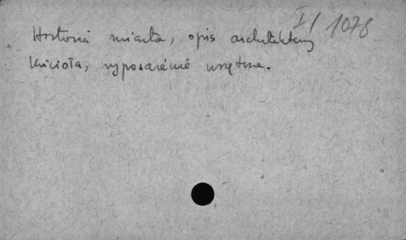 I/1078
Historia miasta, opis architektury
kościoła, wyposażenie wnętrza.